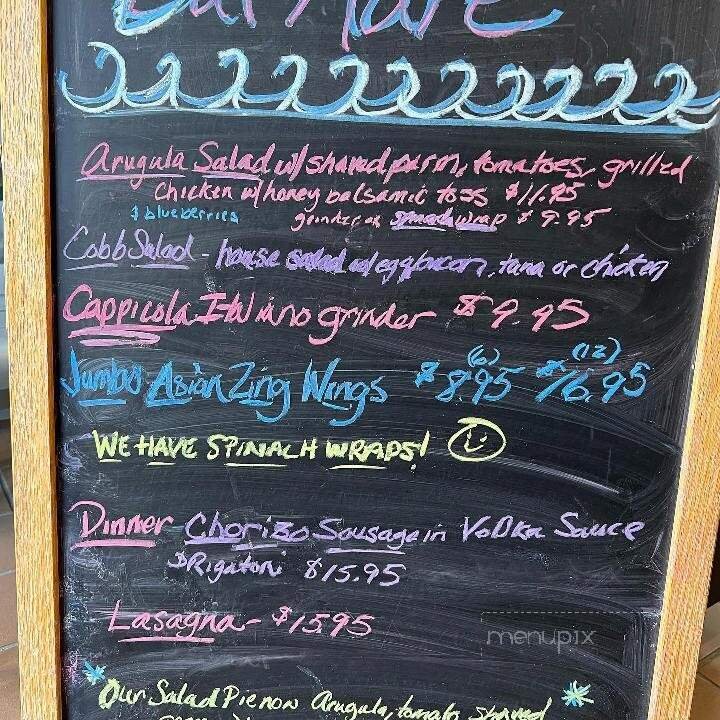 Arugula Salad w/ shaved parm, tomatoes, grilled
chicken w/ honey balsamic toss $11.95
& blueberries grinder or spinach wrap $9.95
Cobb Salad - house salad w/ egg, bacon, tuna or chicken
Cappicola Italiano grinder $9.95
Jumbo Asian Zing Wings (6) $8.95 (12) $16.95
WE HAVE SPINACH WRAPS!
Dinner Chorizo Sausage in Vodka Sauce
& Rigatoni $15.95
Lasagna - $15.95
menupix
* Our Salad Pie now Arugula, tomato, shaved *